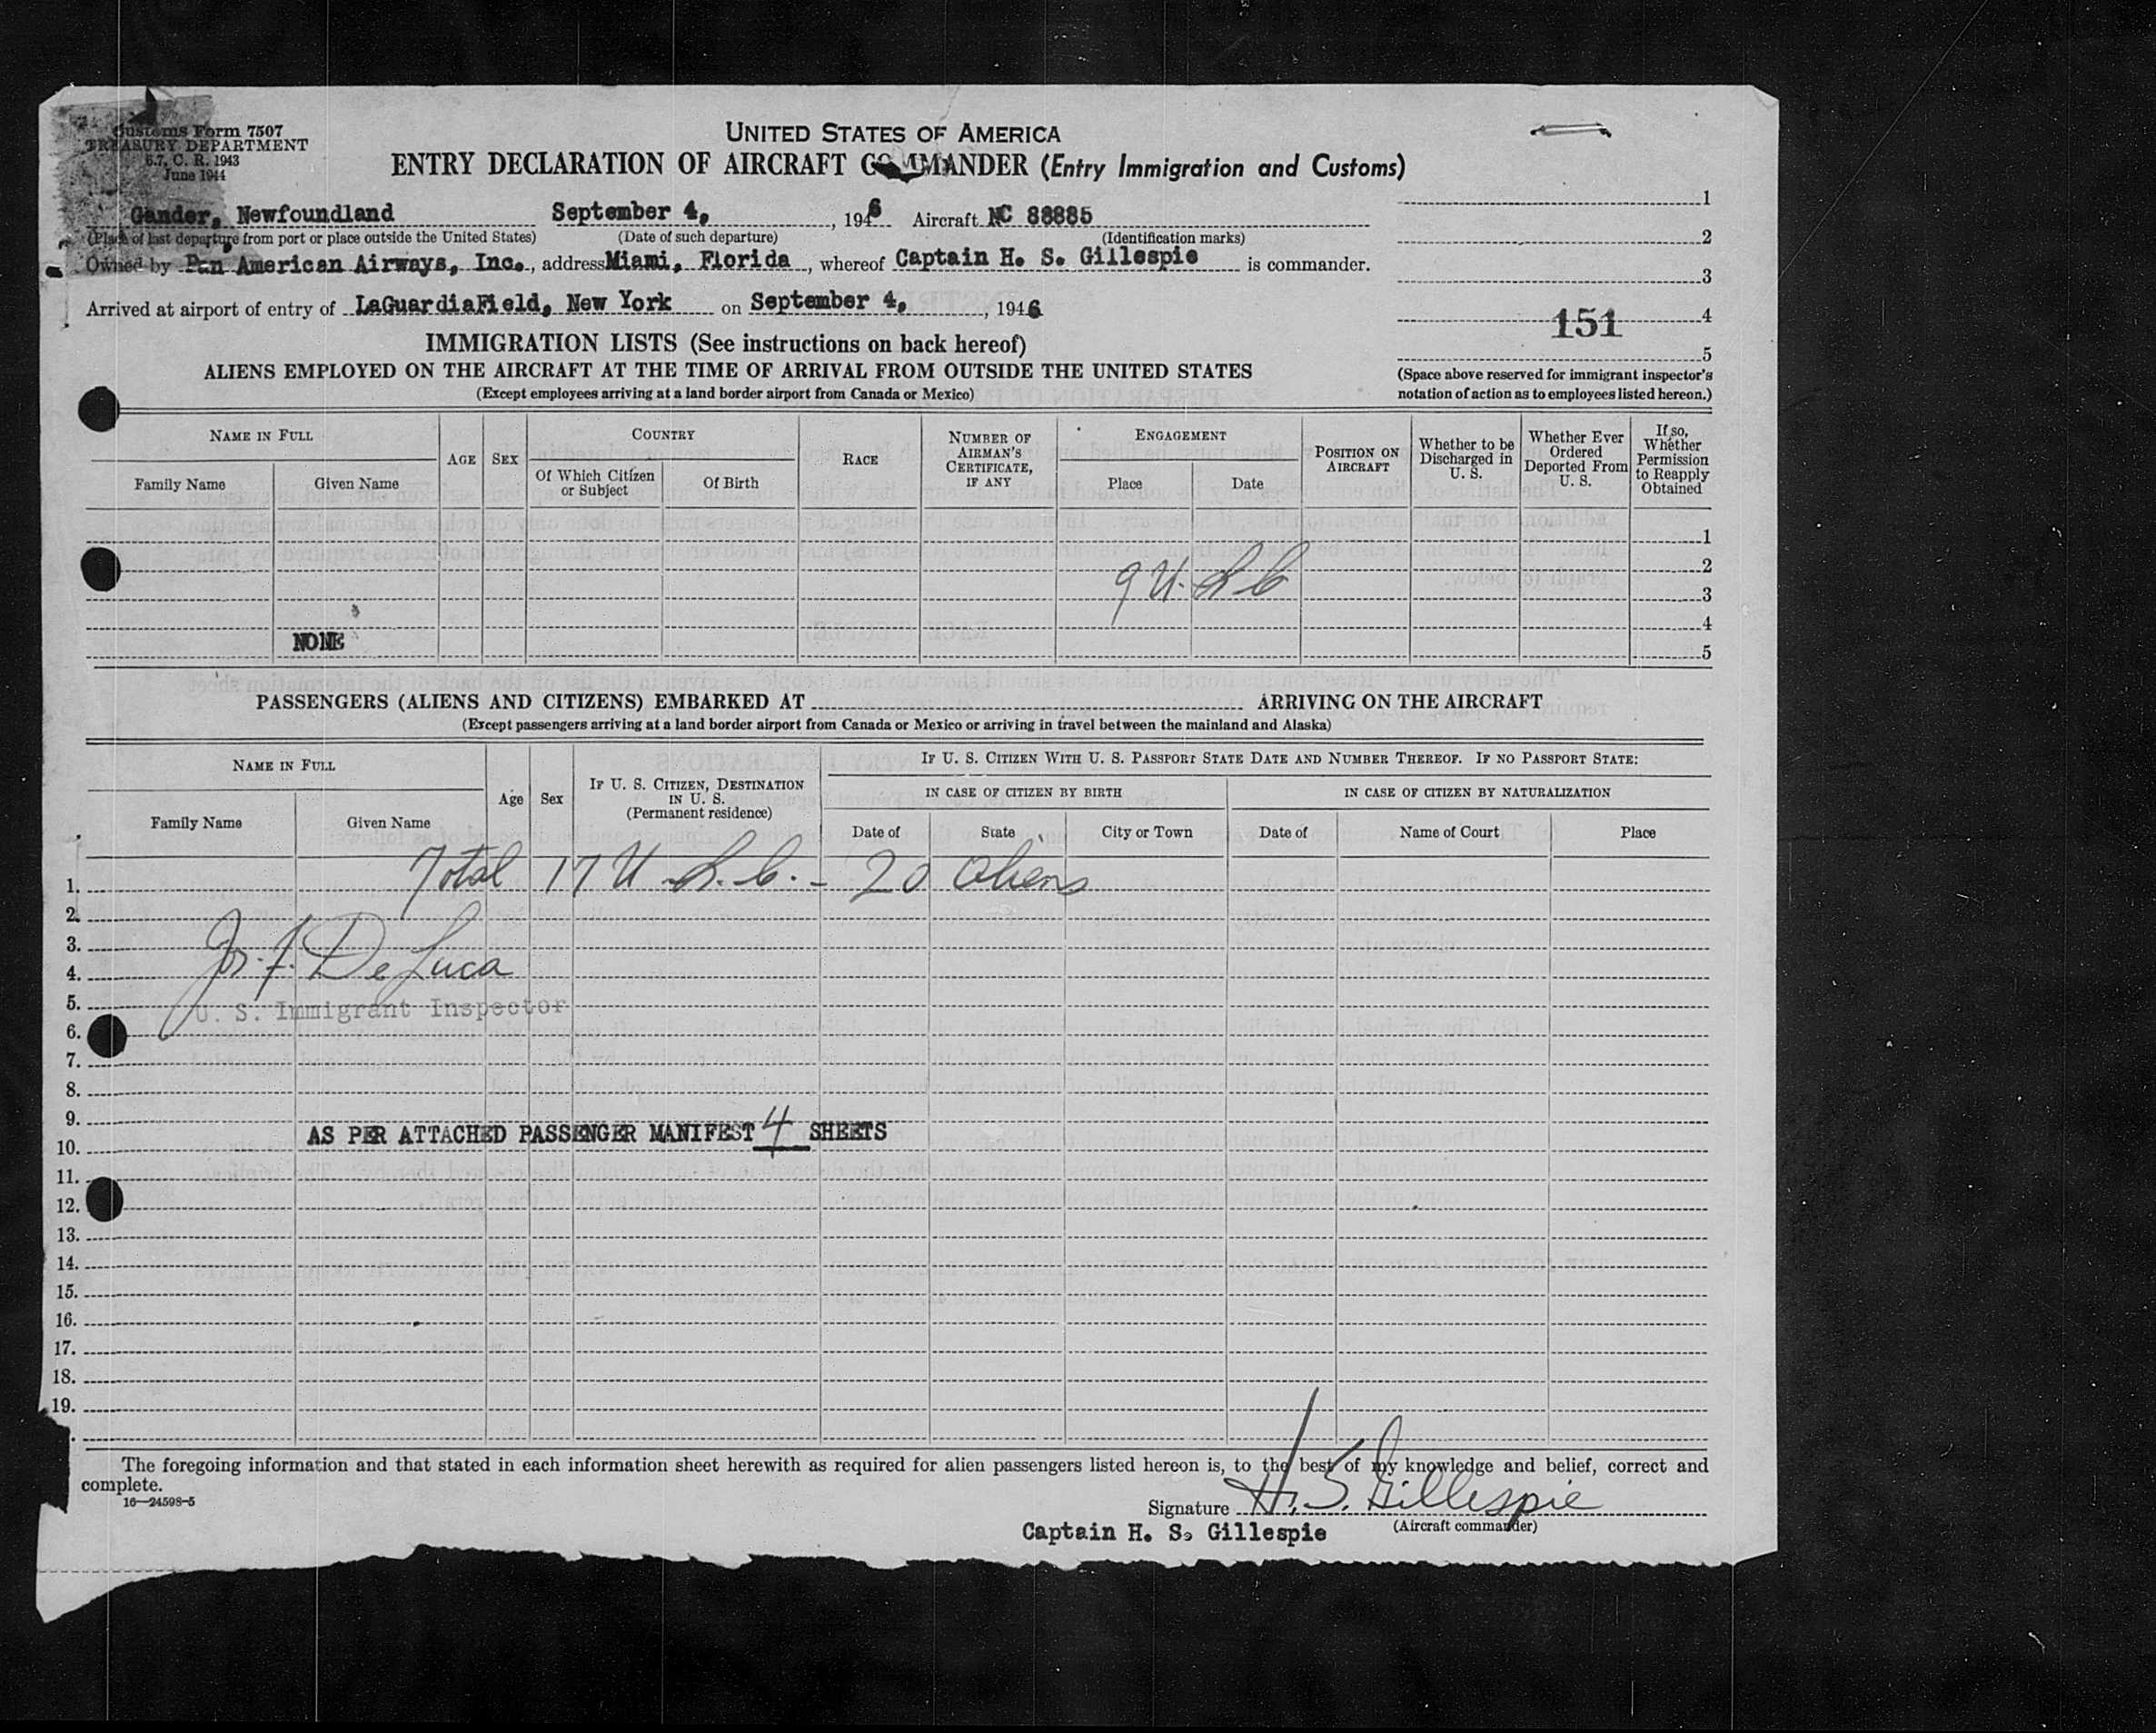 Customs Form 7507
TREASURY DEPARTMENT
6.7, C. R. 1943
June 1944
UNITED STATES OF AMERICA
ENTRY DECLARATION OF AIRCRAFT COMMANDER (Entry Immigration and Customs)
Gander, Newfoundland September 4, , 1946 Aircraft NC 88885
(Place of last departure from port or place outside the United States) (Date of such departure) (Identification marks)
Owned by Pan American Airways, Inc., address Miami, Florida, whereof Captain H. S. Gillespie is commander.
Arrived at airport of entry of LaGuardiaField, New York on September 4, , 1946
1
2
3
151 4
5
(Space above reserved for immigrant inspector's
notation of action as to employees listed hereon.)
IMMIGRATION LISTS (See instructions on back hereof)
ALIENS EMPLOYED ON THE AIRCRAFT AT THE TIME OF ARRIVAL FROM OUTSIDE THE UNITED STATES
(Except employees arriving at a land border airport from Canada or Mexico)
NAME IN FULL
Family Name Given Name
AGE SEX
COUNTRY
Of Which Citizen or Subject Of Birth
RACE
NUMBER OF AIRMAN'S CERTIFICATE, IF ANY
ENGAGEMENT
Place Date
POSITION ON AIRCRAFT
Whether to be Discharged in U. S.
Whether Ever Ordered Deported From U. S.
If so, Whether Permission to Reapply Obtained
1
2
9 U. S. C 3
4
NONE 5
PASSENGERS (ALIENS AND CITIZENS) EMBARKED AT ARRIVING ON THE AIRCRAFT
(Except passengers arriving at a land border airport from Canada or Mexico or arriving in travel between the mainland and Alaska)
NAME IN FULL
Family Name Given Name
Age Sex
IF U. S. CITIZEN, DESTINATION IN U. S. (Permanent residence)
IF U. S. CITIZEN WITH U. S. PASSPORT STATE DATE AND NUMBER THEREOF. IF NO PASSPORT STATE:
IN CASE OF CITIZEN BY BIRTH IN CASE OF CITIZEN BY NATURALIZATION
Date of State City or Town Date of Name of Court Place
1. Total 17 U. S. C. - 20 Aliens
2.
3.
4. Jos. J. De Luca
5. U. S. Immigrant Inspector
6.
7.
8.
9.
10. AS PER ATTACHED PASSENGER MANIFEST 4 SHEETS
11.
12.
13.
14.
15.
16.
17.
18.
19.
The foregoing information and that stated in each information sheet herewith as required for alien passengers listed hereon is, to the best of my knowledge and belief, correct and
complete.
16—24598-5
Signature H. S. Gillespie
(Aircraft commander)
Captain H. S. Gillespie